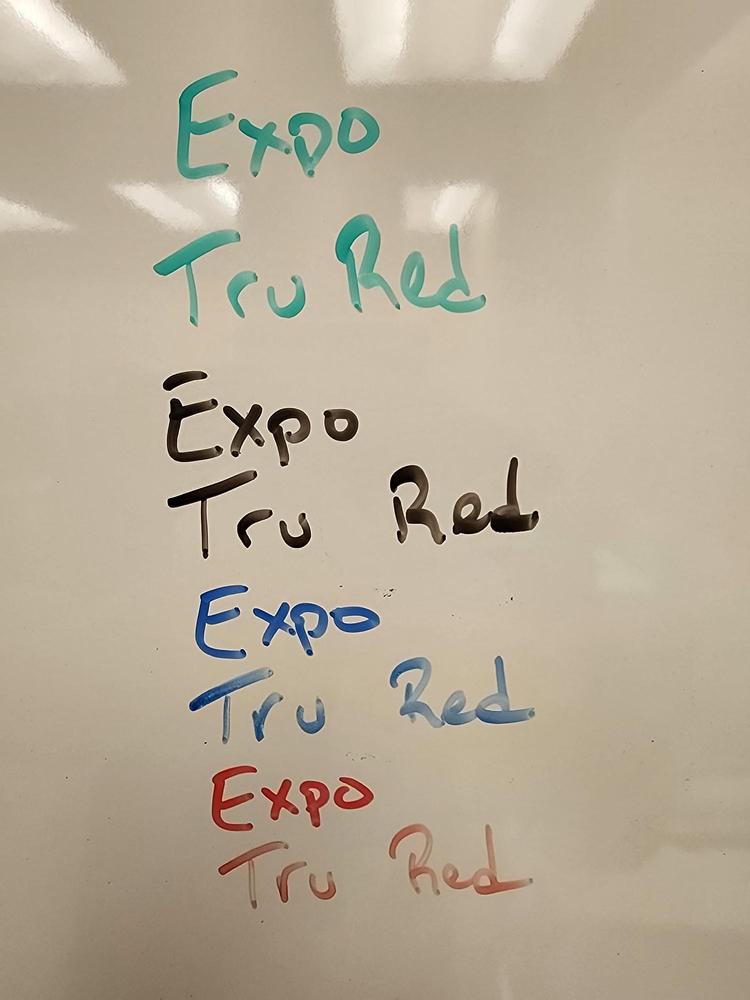 Expo
Tru Red
Expo
Tru Red
Expo
Tru Red
Expo
Tru Red